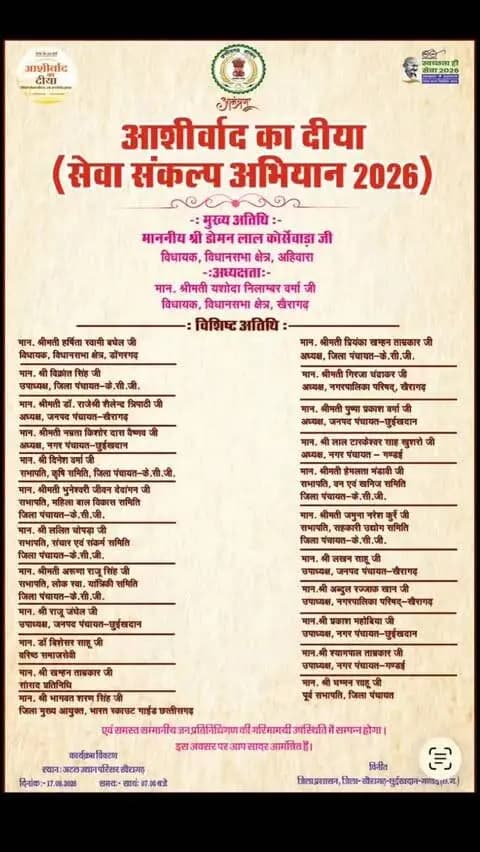 आशीर्वाद
का
दीया
स्वच्छता ही
सेवा 2026
आमंत्रण
आशीर्वाद का दीया
(सेवा संकल्प अभियान 2026)
-: मुख्य अतिथि :-
माननीय श्री डोमन लाल कोर्सेवाड़ा जी
विधायक, विधानसभा क्षेत्र, अहिवारा
-:अध्यक्षता:-
मान. श्रीमती यशोदा निलाम्बर वर्मा जी
विधायक, विधानसभा क्षेत्र, खैरागढ़
: विशिष्ट अतिथि :
मान. श्रीमती हर्षिता स्वामी बघेल जी
विधायक, विधानसभा क्षेत्र, डोंगरगढ़
मान. श्री विक्रांत सिंह जी
उपाध्यक्ष, जिला पंचायत–के.सी.जी.
मान. श्रीमती डॉ. राजेश्री शैलेन्द्र त्रिपाठी जी
अध्यक्ष, जनपद पंचायत–खैरागढ़
मान. श्रीमती नम्रता किशोर दास वैष्णव जी
अध्यक्ष, नगर पंचायत–छुईखदान
मान. श्री दिनेश वर्मा जी
सभापति, कृषि समिति, जिला पंचायत–के.सी.जी.
मान. श्रीमती भुनेश्वरी जीवन देवांगन जी
सभापति, महिला बाल विकास समिति
जिला पंचायत–के.सी.जी.
मान. श्री ललित चोपड़ा जी
सभापति, संचार एवं संकर्म समिति
जिला पंचायत–के.सी.जी.
मान. श्रीमती अरूणा राजू सिंह जी
सभापति, लोक स्वा. यांत्रिकी समिति
जिला पंचायत–के.सी.जी.
मान. श्री राजू जंघेल जी
उपाध्यक्ष, जनपद पंचायत–छुईखदान
मान. डॉ बिशेसर साहू जी
वरिष्ठ समाजसेवी
मान. श्री खम्हन ताम्रकार जी
सांसद प्रतिनिधि
मान. श्री भागवत शरण सिंह जी
जिला मुख्य आयुक्त, भारत स्काउट गाईड छत्तीसगढ़
मान. श्रीमती प्रियंका खम्हन ताम्रकार जी
अध्यक्ष, जिला पंचायत–के.सी.जी.
मान. श्रीमती गिरजा चंद्राकर जी
अध्यक्ष, नगरपालिका परिषद्, खैरागढ़
मान. श्रीमती पुष्पा प्रकाश वर्मा जी
अध्यक्ष, जनपद पंचायत–छुईखदान
मान. श्री लाल टारकेश्वर साह खुशरो जी
अध्यक्ष, नगर पंचायत – गण्डई
मान. श्रीमती हेमलता मंडावी जी
सभापति, वन एवं खनिज समिति
जिला पंचायत–के.सी.जी.
मान. श्रीमती जमुना नरेश कुर्रे जी
सभापति, सहकारी उद्योग समिति
जिला पंचायत–के.सी.जी.
मान. श्री लखन साहू जी
उपाध्यक्ष, जनपद पंचायत–खैरागढ़
मान.श्री अब्दुल रज्जाक खान जी
उपाध्यक्ष, नगरपालिका परिषद्–खैरागढ़
मान.श्री प्रकाश महोबिया जी
उपाध्यक्ष, नगर पंचायत–छुईखदान
मान.श्री श्यामपाल ताम्रकार जी
उपाध्यक्ष, नगर पंचायत–गण्डई
मान. श्री घम्मन साहू जी
पूर्व सभापति, जिला पंचायत
एवं समस्त सम्मानीय जन.प्रतिनिधिगण की गरिमामयी उपस्थिति में सम्पन्न होगा।
इस अवसर पर आप सादर आमंत्रित हैं।
कार्यक्रम विवरण
स्थान: अटल उद्यान परिसर खैरागढ़
दिनांक:- 17.09.2026 समय:- सायं: 07.00 बजे
विनीत
जिला प्रशासन, जिला- खैरागढ़-छुईखदान-गण्डई(छ.ग.)